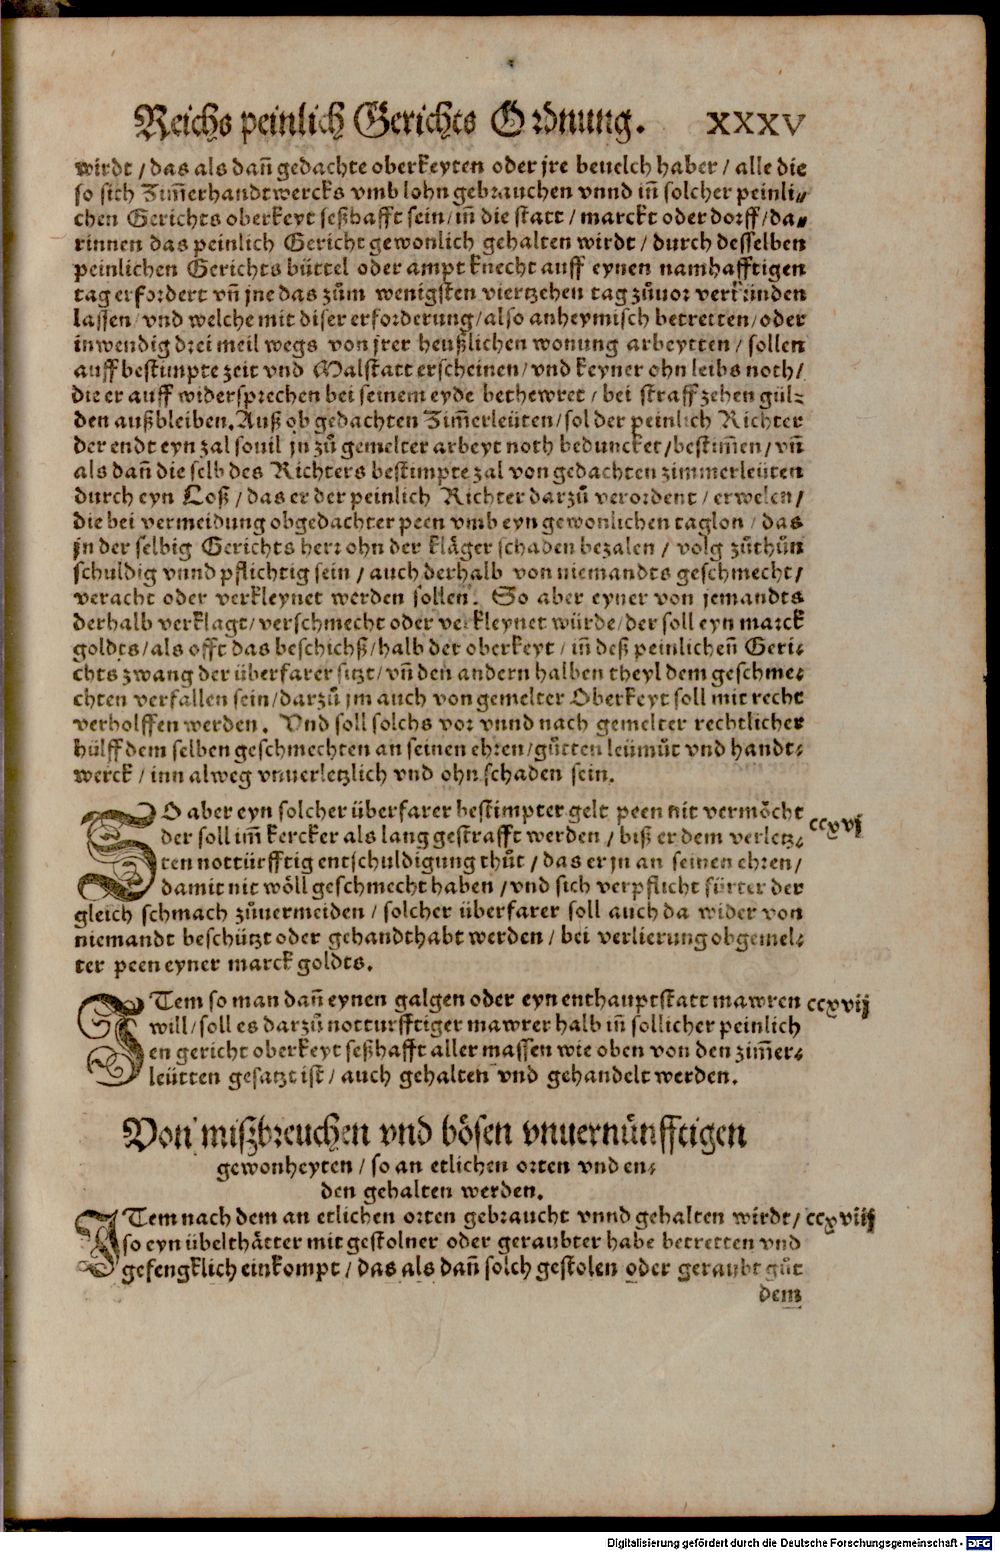 Reichs peinlich Gerichts Ordnung. XXXV
wirdt / das als dañ gedachte oberkeyten oder jre beuelch haber / alle die
so sich Zim̃erhandtwercks vmb lohn gebrauchen vnnd im̃ solcher peinli⸗
chen Gerichts oberkeyt seßhafft sein / im̃ die statt / marckt oder dorff / da⸗
rinnen das peinlich Gericht gewonlich gehalten wirdt / durch desselben
peinlichen Gerichts büttel oder ampt knecht auff eynen namhafftigen
tag erfordert vñ jne das zům wenigsten viertzehen tag zůuor verkünden
lassen / vnd welche mit diser erforderung / also anheymisch betretten / oder
inwendig drei meil wegs von jrer heußlichen wonung arbeytten / sollen
auff bestimpte zeit vnd Malstatt erscheinen / vnd keyner ohn leibs noth /
die er auff widersprechen bei seinem eyde bethewret / bei straff zehen gül⸗
den außbleiben. Auß ob gedachten Zim̃erleüten / sol der peinlich Richter
der endt eyn zal souil jn zů gemelter arbeyt noth beduncket / bestim̃en / vñ
als dañ die selb des Richters bestimpte zal von gedachten zimmerleüten
durch eyn Loß / das er der peinlich Richter darzů verordent / erwelen /
die bei vermeidung obgedachter peen vmb eyn gewonlichen taglon / das
jn der selbig Gerichts herr ohn der kläger schaden bezalen / volg zůthůn
schuldig vnnd pflichtig sein / auch derhalb von niemandts geschmecht /
veracht oder verkleynet werden sollen. So aber eyner von jemandts
derhalb verklagt / verschmecht oder verkleynet würde / der soll eyn marck
goldts / als offt das beschichß / halb der oberkeyt / im̃ deß peinlicheñ Geri⸗
chts zwang der überfarer sitzt / vñ den andern halben theyl dem geschme⸗
chten verfallen sein / darzů jm auch von gemelter Oberkeyt soll mit recht
verholffen werden. Vnd soll solchs vor vnnd nach gemelter rechtlicher
hülff dem selben geschmechten an seinen ehren / gůtten leümůt vnd handt⸗
werck / inn alweg vnuerletzlich vnd ohn schaden sein.
SO aber eyn solcher überfarer bestimpter gelt peen nit vermöcht ccxvj
der soll im̃ kercker als lang gestrafft werden / biß er dem verletz⸗
ten nottürfftig entschuldigung thůt / das er jn an seinen ehren /
damit nit wöll geschmecht haben / vnd sich verpflicht fürter der
gleich schmach zůuermeiden / solcher überfarer soll auch da wider von
niemandt beschützt oder gehandthabt werden / bei verlierung obgemel⸗
ter peen eyner marck goldts.
ITem so man dañ eynen galgen oder eyn enthauptstatt mawren ccxvij
will / soll es darzů notturfftiger mawrer halb im̃ sollicher peinlich
en gericht oberkeyt seßhafft aller massen wie oben von den zim̃er⸗
leütten gesatzt ist / auch gehalten vnd gehandelt werden.
Von mißbreuchen vnd bösen vnuernünfftigen
gewonheyten / so an etlichen orten vnd en⸗
den gehalten werden.
ITem nach dem an etlichen orten gebraucht vnnd gehalten wirdt / ccxviij
so eyn übelthätter mit gestolner oder geraubter habe betretten vnd
gefengklich einkompt / das als dañ solch gestolen oder geraubt gůt
dem
Digitalisierung gefördert durch die Deutsche Forschungsgemeinschaft - DFG